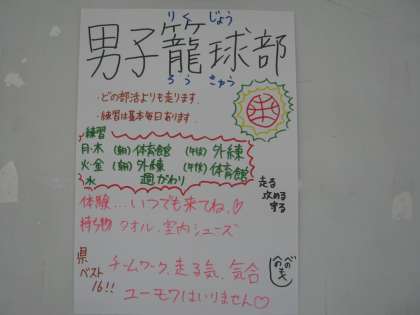 りくじょう
男子籠球部
ろうきゅう
・どの部活よりも走ります。
・練習は基本毎日あります。
練習
月・木 (朝)体育館 (午後)外練
火・金 (朝)外練 (午後)体育館
水 週がわり
走る
攻める
守る
体験...いつでも来てね♡
持ち物 タオル、室内シューズ
県
ベスト
16!!
チームワーク、走る気、気合
ユーモワはいりません♡